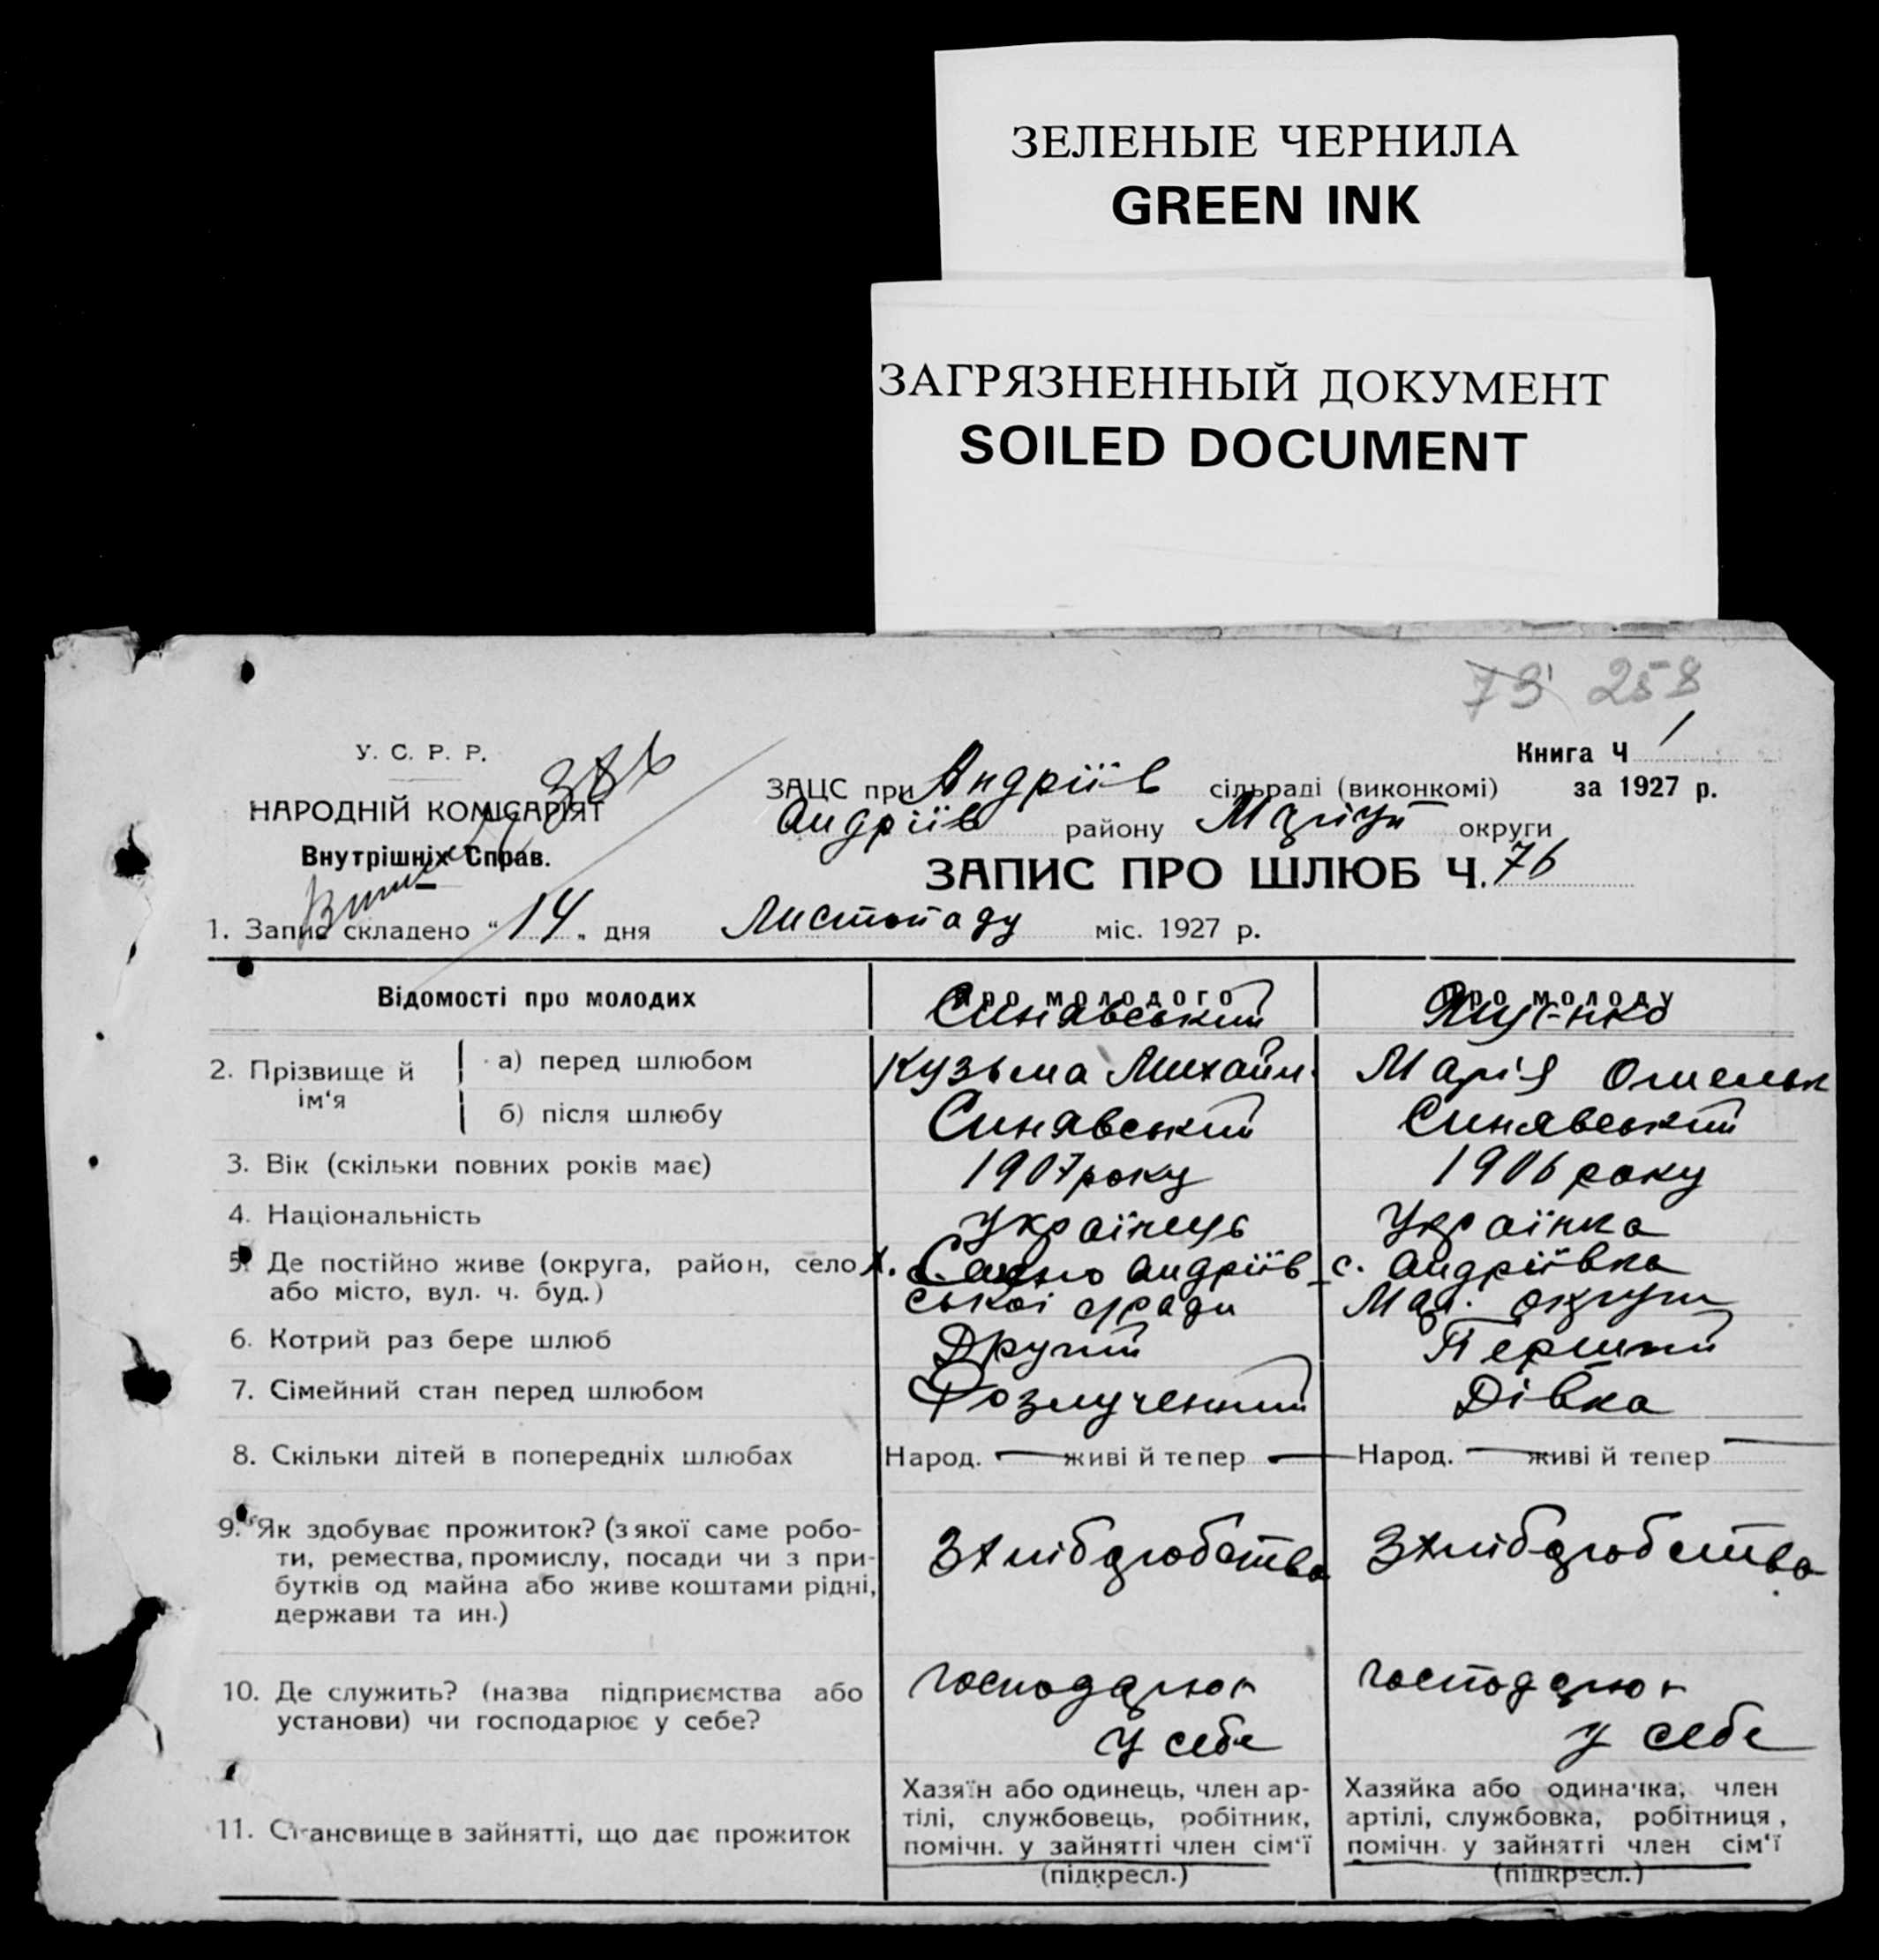 ЗЕЛЕНЫЕ ЧЕРНИЛА
GREEN INK
ЗАГРЯЗНЕННЫЙ ДОКУМЕНТ
SOILED DOCUMENT
73 258
У. С. Р. Р.
НАРОДНІЙ КОМІСАРІЯТ
Внутрішніх Справ.
386
Книга Ч 1
за 1927 р.
ЗАЦС при Андріїв сільраді (виконкомі)
Андріїв району Маріуп округи
ЗАПИС ПРО ШЛЮБ Ч. 76
1. Запис складено "14" дня Листопаду міс. 1927 р.
Відомості про молодих
Про молодого
Про молоду
Синявський
2. Прізвище й ім'я
а) перед шлюбом
Кузьма Михайл.
Марія Омельк
б) після шлюбу
Синявський
Синявський
3. Вік (скільки повних років має)
1907 року
1906 року
4. Національність
Українець
Українка
5. Де постійно живе (округа, район, село
або місто, вул. ч. буд.)
х. Андріїв-
ської с/ради
с. Андріївка
Мар. округи
6. Котрий раз бере шлюб
Другий
Перший
7. Сімейний стан перед шлюбом
Розлучений
Дівка
8. Скільки дітей в попередніх шлюбах
Народ. — живі й тепер —
Народ. — живі й тепер —
9. Як здобуває прожиток? (з якої саме робо-
ти, ремества, промислу, посади чи з при-
бутків од майна або живе коштами рідні,
держави та ин.)
З хлібдробства
З хлібдробства
10. Де служить? (назва підприємства або
установи) чи господарює у себе?
господарює
у себе
господарює
у себе
11. Становище в зайнятті, що дає прожиток
Хазяїн або одинець, член ар-
тілі, службовець, робітник,
помічн. у зайнятті член сім'ї
(підкресл.)
Хазяйка або одиначка, член
артілі, службовка, робітниця,
помічн. у зайнятті член сім'ї
(підкресл.)